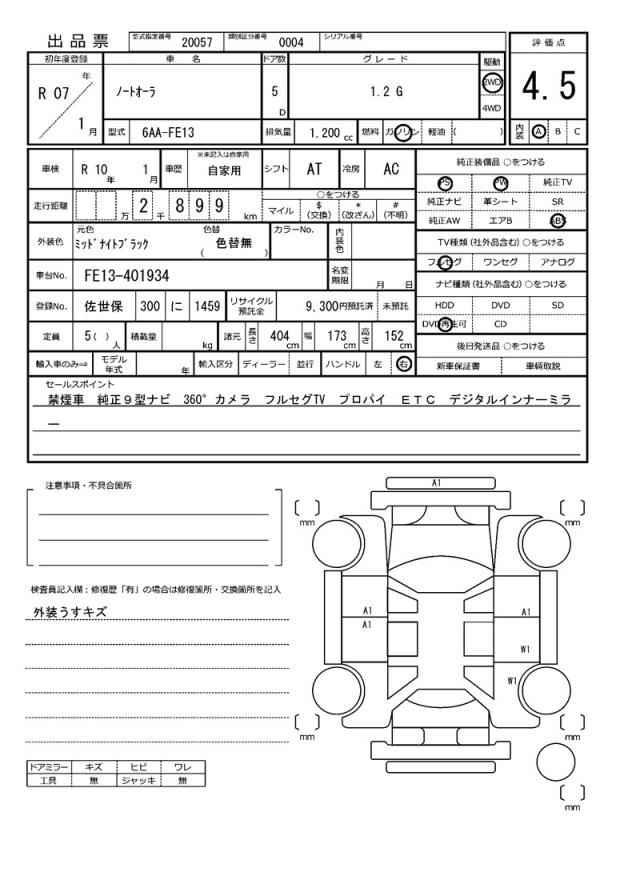 出品票 型式指定番号 20057 類別区分番号 0004 シリアル番号
評価点
初年度登録 車名 ドア数 グレード 駆動
R 07 年 1 月 ノートオーラ 5 D 1.2 G 2WD 4WD 4.5
型式 6AA-FE13 排気量 1.200 cc 燃料 ガソリン 軽油 ( ) 内装 A B C
車検 R 10 年 1 月 車歴 ※未記入は自家用 自家用 シフト AT 冷房 AC
走行距離 万 2 千 8 9 9 km
○をつける
マイル $(交換) *(改ざん) #(不明)
外装色 元色 ミッドナイトブラック 色替 ( 色替無 ) カラーNo. 内装色
車台No. FE13-401934 名変期限 月 日
登録No. 佐世保 300 に 1459 リサイクル預託金 9,300円預託済 未預託
定員 5 ( ) 人 積載量 kg 諸元 長さ 404 cm 幅 173 cm 高さ 152 cm
輸入車のみ⇒ モデル年式 年 輸入区分 ディーラー 並行 ハンドル 左 右
純正装備品 ○をつける
PS PW 純正TV
純正ナビ 革シート SR
純正AW エアB ABS
TV種類(社外品含む)○をつける
フルセグ ワンセグ アナログ
ナビ種類(社外品含む)○をつける
HDD DVD SD
DVD再生可 CD
後日発送品 ○をつける
新車保証書 車輌取説
セールスポイント
禁煙車 純正9型ナビ 360°カメラ フルセグTV プロパイ ETC デジタルインナーミラ
ー
注意事項・不具合箇所
検査員記入欄：修復歴「有」の場合は修復箇所・交換箇所を記入
外装うすキズ
ドアミラー キズ ヒビ ワレ
工具 無 ジャッキ 無
A1
mm
mm
A1
A1
A1
W1
W1
mm
mm
mm